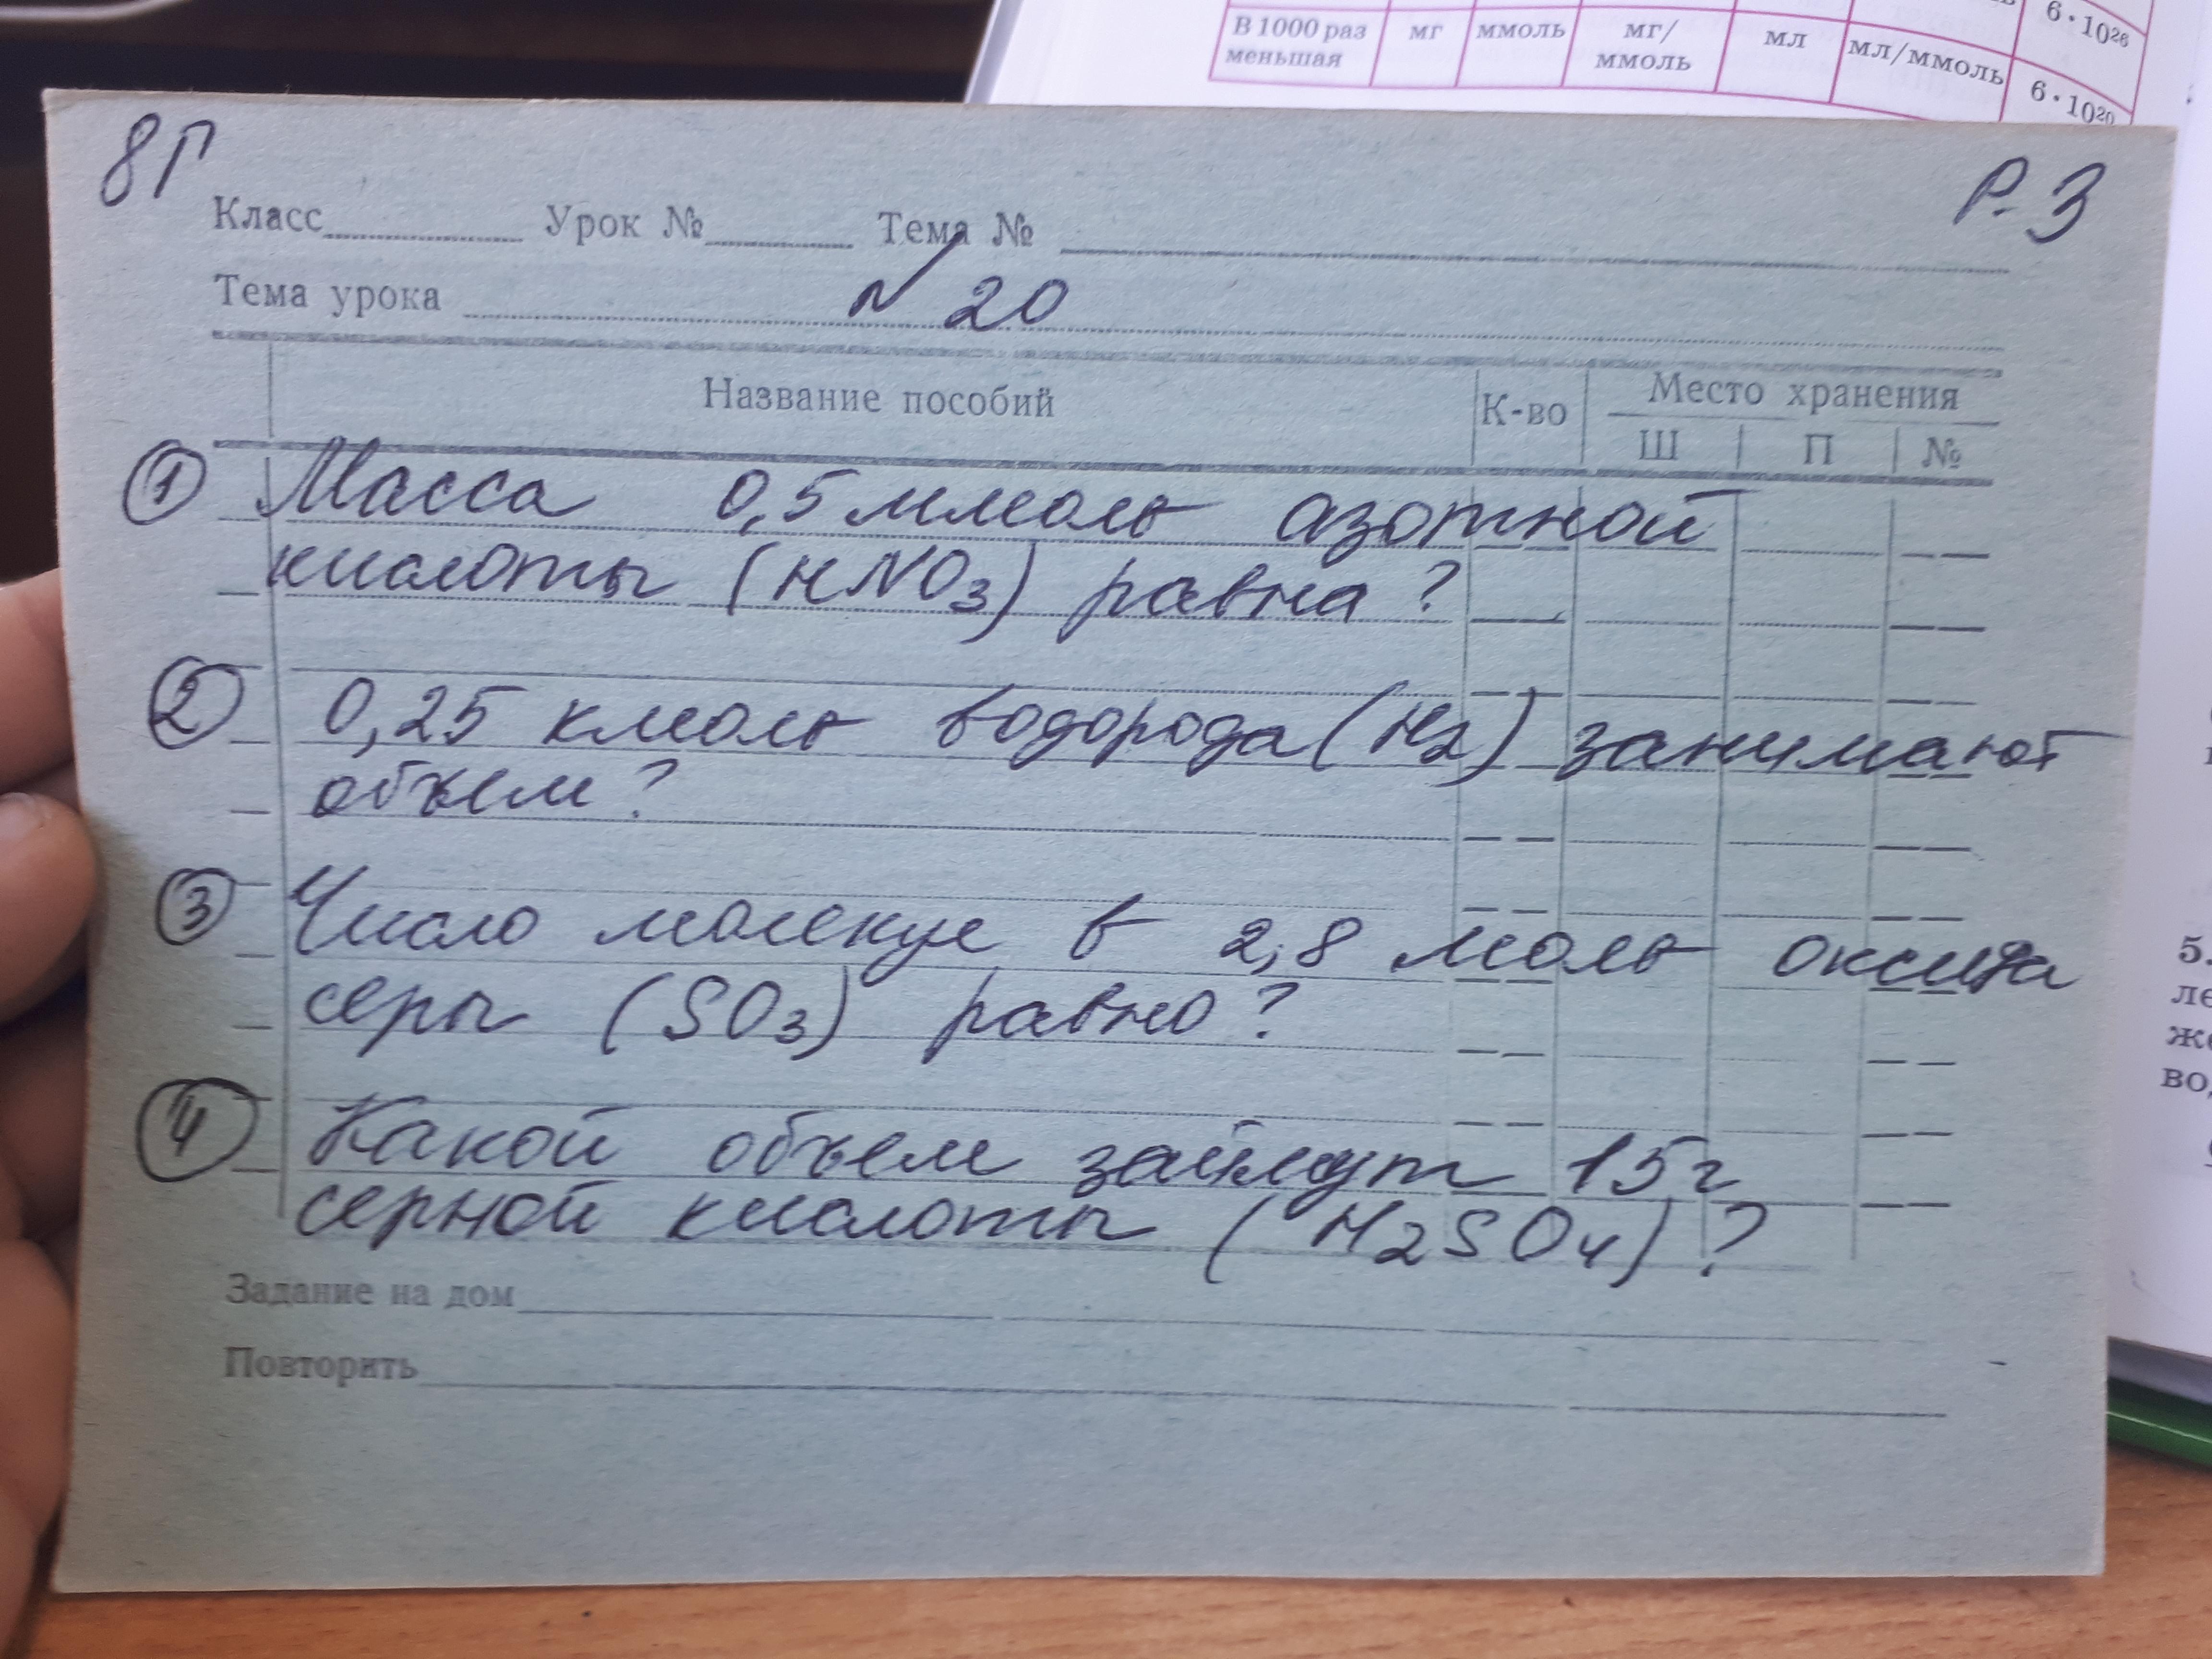 6·10²⁶
В 1000 раз меньшая мг ммоль мг/ммоль мл мл/ммоль 6·10²⁰
8Г
Р-3
Класс Урок № Тема №
Тема урока № 20
Название пособий К-во Место хранения
Ш П №
1 Масса 0,5 ммоль азотной
кислоты (HNO3) равна?
2 0,25 кмоль водорода (H2) занимают
объем?
3 Число молекул в 2,8 моль оксида
серы (SO3) равно?
4 Какой объем займут 15г
серной кислоты (H2SO4)?
Задание на дом
Повторить
5.
ле
же
во